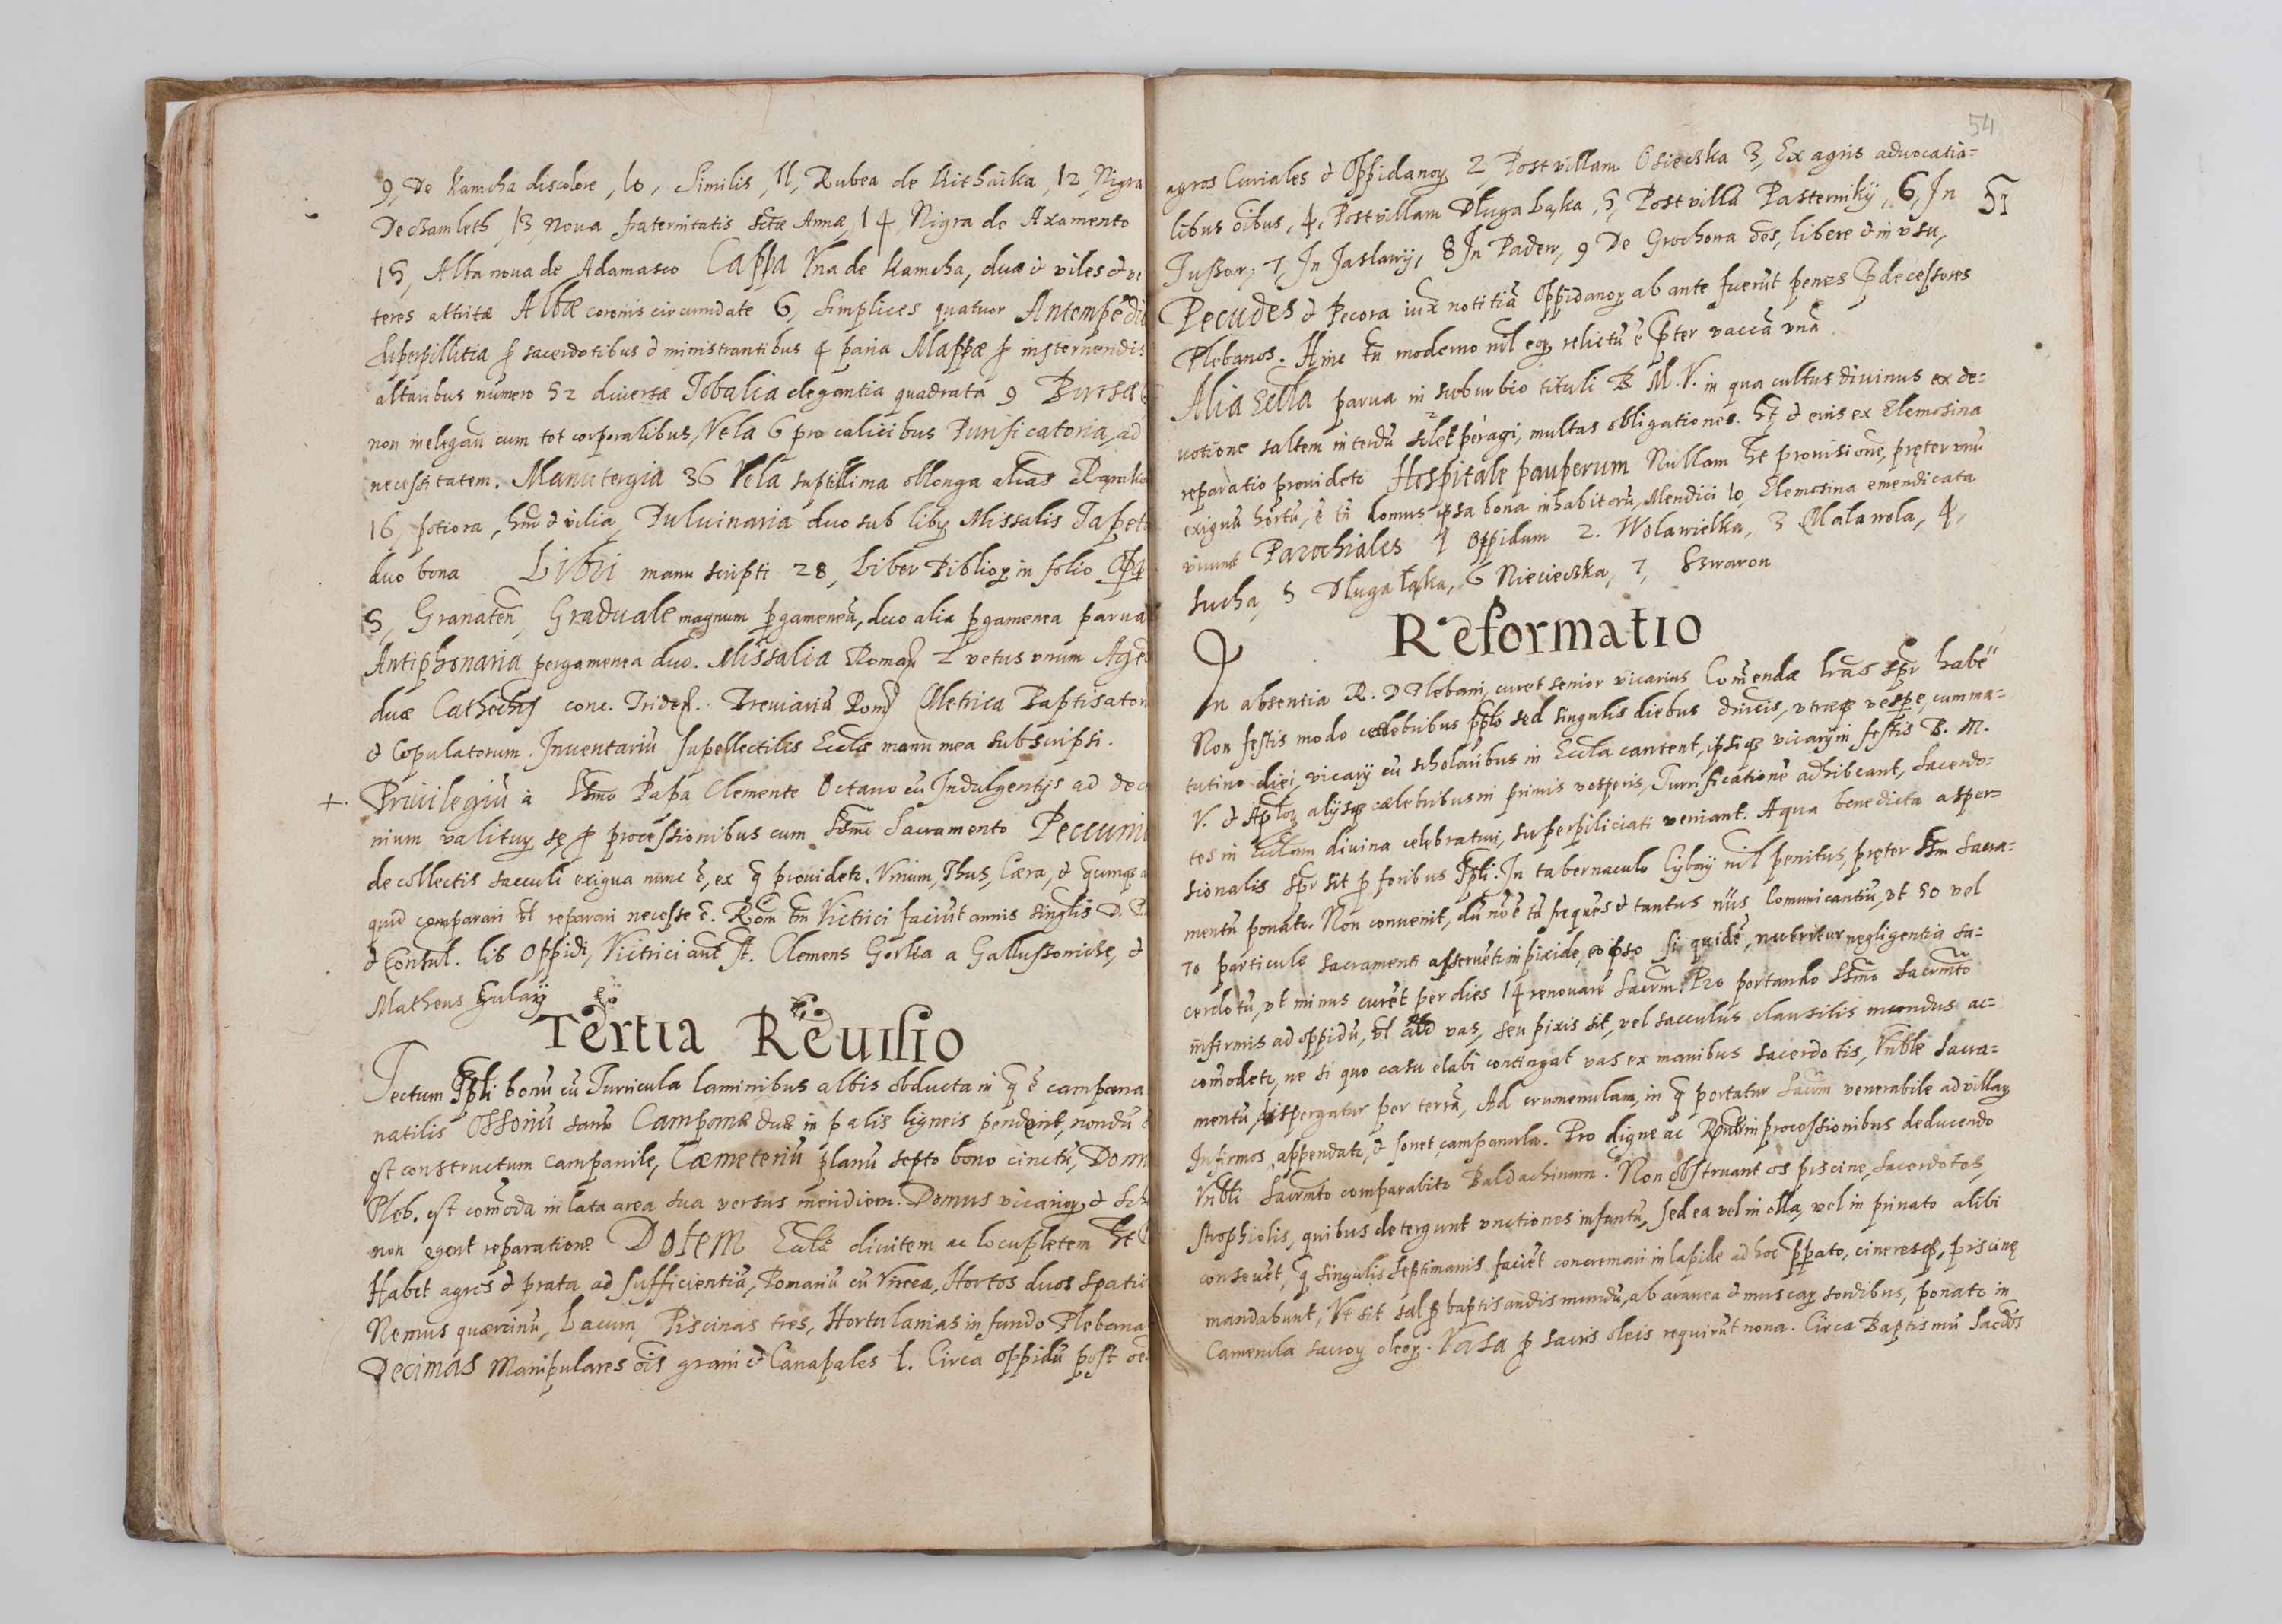 9, De Kamcha discolore, 10, Similis, 11, Rubea de Kithaika, 12, Nigra
De czamleth, 13, Noua fraternitatis sctæ Annæ, 14, Nigra de Axamento
15, Alta noua de Adamasco Cappa Vna de Kamcha, duæ & viles & ve
teres attritæ Albæ coronis circumdate 6, Simplices quatuor Antempedia
Superpillitia p sacerdotibus & ministrantibus 4 paria Mappæ p insternendis
altaribus numero 52 diuersæ Tobalia elegantia quadrata 9 Bursæ
non inelegan cum tot corporalibus, Vela 6 pro calicibus Purificatoria ad
necessitatem. Manutergia 36 Vela suptillima oblonga alias
16, potiora, hm̃ & vilia, Puluinaria duo sub libꝝ Missalis Tapet
duo bona Libri manu scripti 28, Liber Biblioꝝ in folio
5, Granateñ, Graduale magnum pgameneũ, duo alia pgamenea parua
Antiphonaria pergamenea duo. Missalia Roman 2 vetus vnum Agen
duæ Cathechis conc. Triden. Breuiariũ Rom Metrica Baptisator
& Copulatorum. Inuentariũ supellectilis Eccliæ manu mea subscripsi.
+. Priuilegiũ a Ssmo Papa Clemente Octauo cũ Indulgentijs ad dece
nium valituꝝ p processionibus cum Ssmo Sacramento Peccuni
de collectis sacculi exigua nunc ẽ, ex q̃ prouidetr. Vinum, Thus, Cæra, & 
quid comparari vl reparari necesse ẽ. Rõm tm̃ Victrici faciũt annis singlis D.
& Consul. lib Oppidi, Victrici aut st. Clemens Gorka a Galluszowicze, &
Matheus
Tertia Reuisio
Tectum Tpli bonũ cũ Turricula laminibus albis obducta in q̃ ẽ campana
natilis Ossoriũ sanũ Campanæ duæ in palis ligneis pendent, nondũ
est constructum campanile, Cæmeteriũ planũ septo bono cinctũ, Dom
Pleb. est com̃oda in lata area sua versus meridiem. Domus vicarioꝝ & Sch
non egent reparatione Dotem Eccla diuitem ac locupletem ht
Habet agros & prata ad sufficientiã, Pomariũ cũ Vinea, Hortos duos spatio
Nemus quærcinũ, Lacum, Piscinas tres, Hortulanias in fundo Plebana
Decimas Manipulares ois grani & Canapales 1. Circa oppidũ post
54
51
agros Curiales & Oppidanoꝝ 2, Post villam Osieczka 3, Ex agris aduocatia=
libus oibus, 4, Post villam Dluga Laka, 5, Post villã Pasterniky, 6, In
Tuszow, 7, In Jaslany, 8 In Padew, 9 De Grochowa des, libere & in vsu,
Pecudes & Pecora iux notitiã Oppidanoꝝ ab ante fuerũt penes p̃decessores
Plebanos. Hinc tñ moderno nil eoꝝ relictũ ẽ pter vaccã vnã
Alia Eccla parua in suburbio tituli B. M. V. in qua cultus diuinus ex de=
uotione saltem interdũ solet peragi, multas obligationes. ht & eius ex Elemosina
reparatio prouidetr Hospitale pauperum Nullam ht prouisionẽ, pręter vnũ
exiguũ hortũ, ẽ tñ domus ipsa bona inhabitorũ, Mendici 10, Elemosina emendicata
viuunt Parochiales 1 Oppidum 2. Wolawielka, 3 Malawola, 4,
Sucha, 5 Długałąka, 6 Niecieczka, 7, Sarnow
Reformatio
In absentia R. D Plebani, curet senior vicarius Com̃endæ lras spr habẽ
Non festis modo celebribus pplo sed singulis diebus dñicis, vtrasqꝫ vespe, cum ma=
tutino diei, vicarij cũ scholaribus in Eccla cantent, ipsiqꝫ vicarij in festis B. M.
V. & Aploꝝ alijsqꝫ celebribus in primis vesperis, Turrificationẽ adhibeant, Sacerdo=
tes in Ecclam diuina celebraturi, superpiliciati veniant. Aqua benedicta asper=
sionalis spr sit p foribus Tpli. In tabernaculo Cyborij nil penitus, pręter Ssm Sacra=
mentũ ponatr. Non conuenit, dũ nõ ẽ tã frequẽs & tantus nũs Communicantiũ, vt 50 vel
70 particule Sacramenti asseruẽtr in pixide, eo ipso si quidẽ, nutritur negligentia Sa=
cerdotũ, vt minus curẽt per dies 14 renouare Sacrm. Pro portando Ssmo Sacrmto
infirmis ad oppidũ, vl vas, seu pixis sit, vel sacculus clausilis mundus ac=
comodetr, ne si quo casu elabi contingat vas ex manibus sacerdotis, Vnble Sacra=
mentũ, dispergatur per terrã, Ad crumenulam, in q̃ portatur Sacrm venerabile ad villaꝝ
Infirmos, appendatr, & sonet, campanula. Pro digne ac Rpuls in processionibus deducendo
Vnbli Sacrmto comparabitr Baldachinum. Non obstruant os piscine, Sacerdotes,
strophiolis, quibus detergunt vnctiones infantũ, sed ea vel in olla, vel in priuato alibi
conseruẽt, q̃ singulis septimanis faciẽt concremari in lapide ad hoc p̃pato, cineresqꝫ, piscinę
mandabunt, Vt sit sal p baptisandis mundũ, ab aranea & muscaꝝ sordibus, ponatr in
Camerula sacroꝝ oleoꝝ. Vasa p sacris oleis requirũt noua. Circa Baptismũ Sacdos